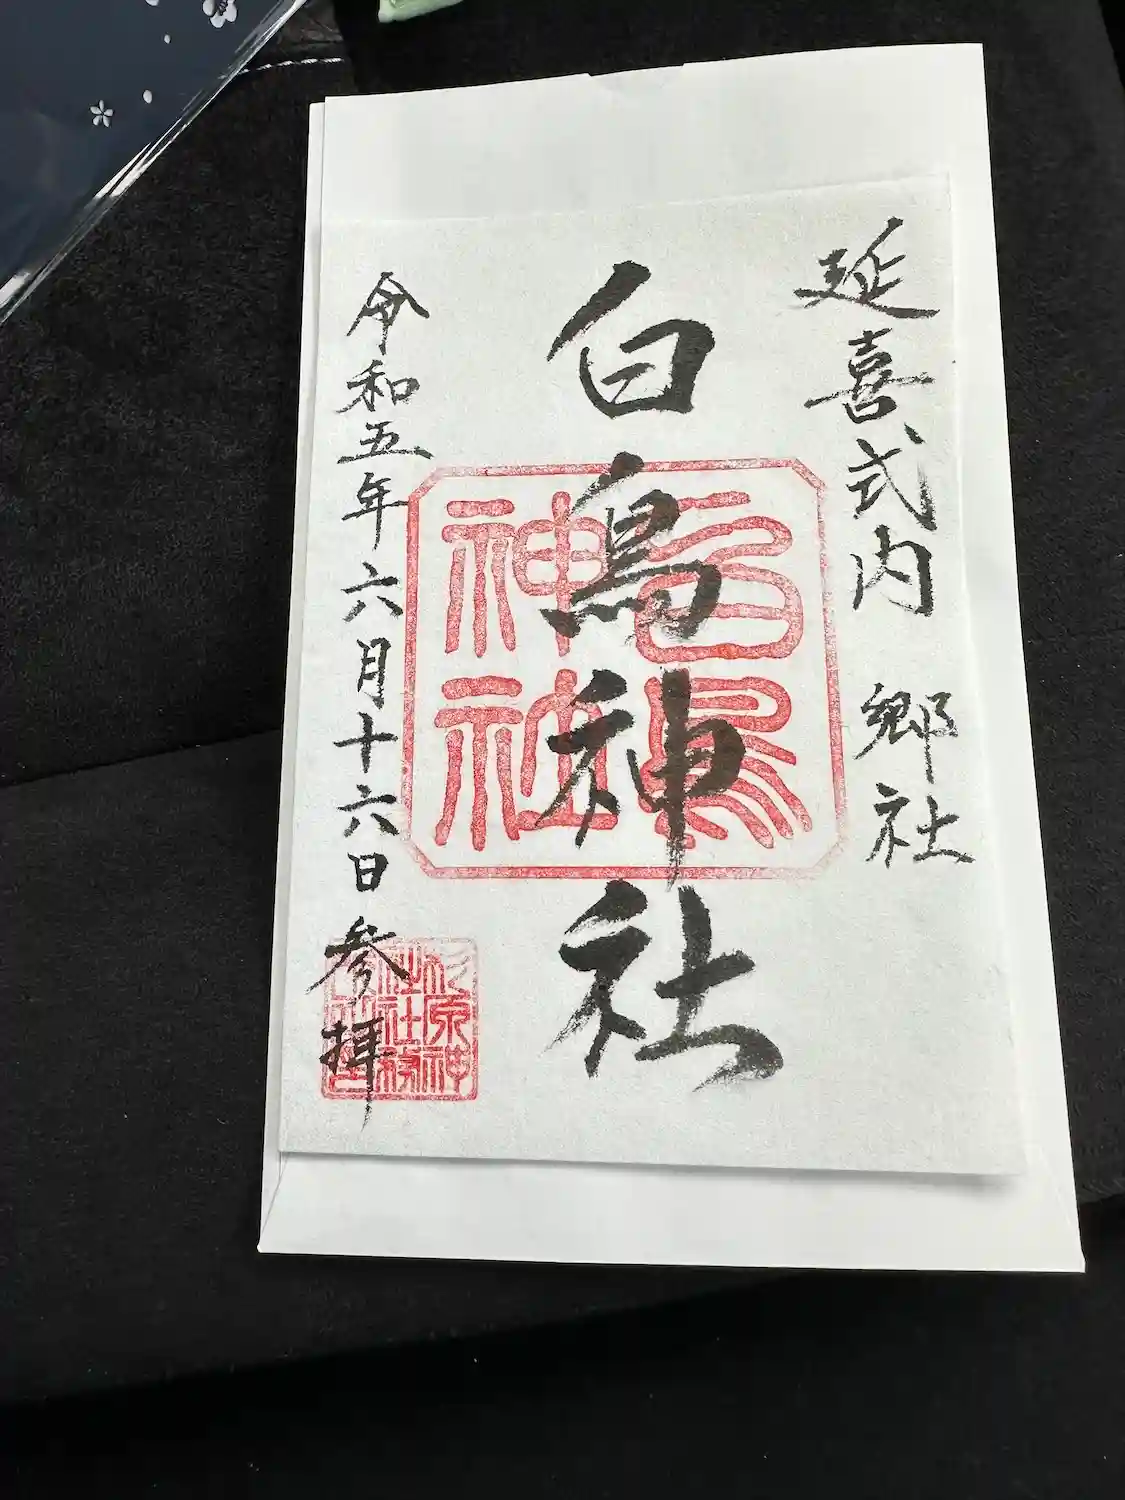 延喜式内 郷社
白鳥神社
白鳥
神社
令和五年六月十六日参拝